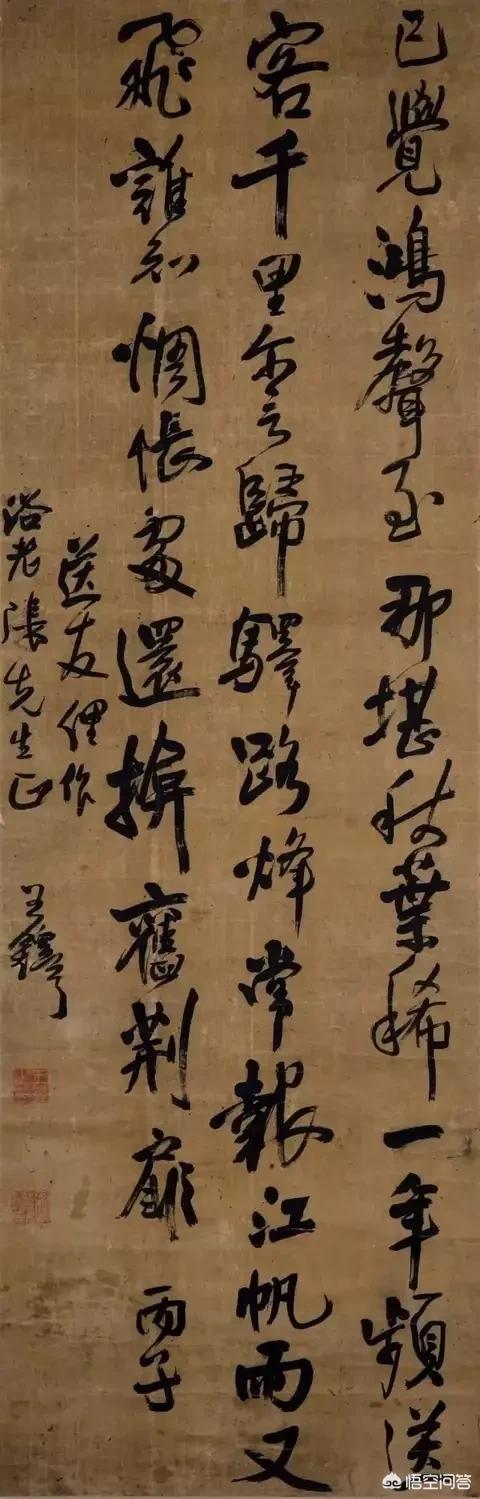 已覺鴻聲至那堪秋葉稀一年頻送
客千里尒言歸驛路烽常報江帆雨又
飛誰知惆悵處還揜舊荆扉丙子
送友俚作
老張先生正王鐸
悟空问答